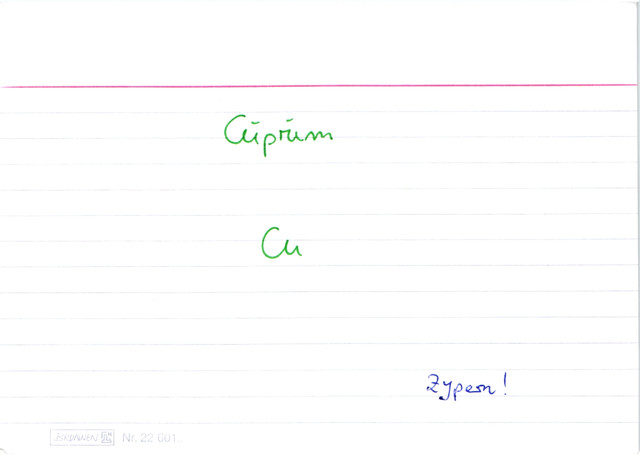 Cuprum
Cu
Zypern!
BRUNNEN Nr. 22 601